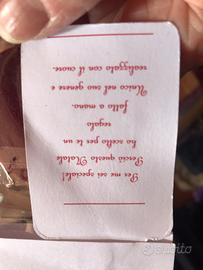 Per me sei speciale!
Perciò questo Natale
ho scelto per te un
regalo
fatto a mano.
Unico nel suo genere e
realizzato con il cuore.
subito